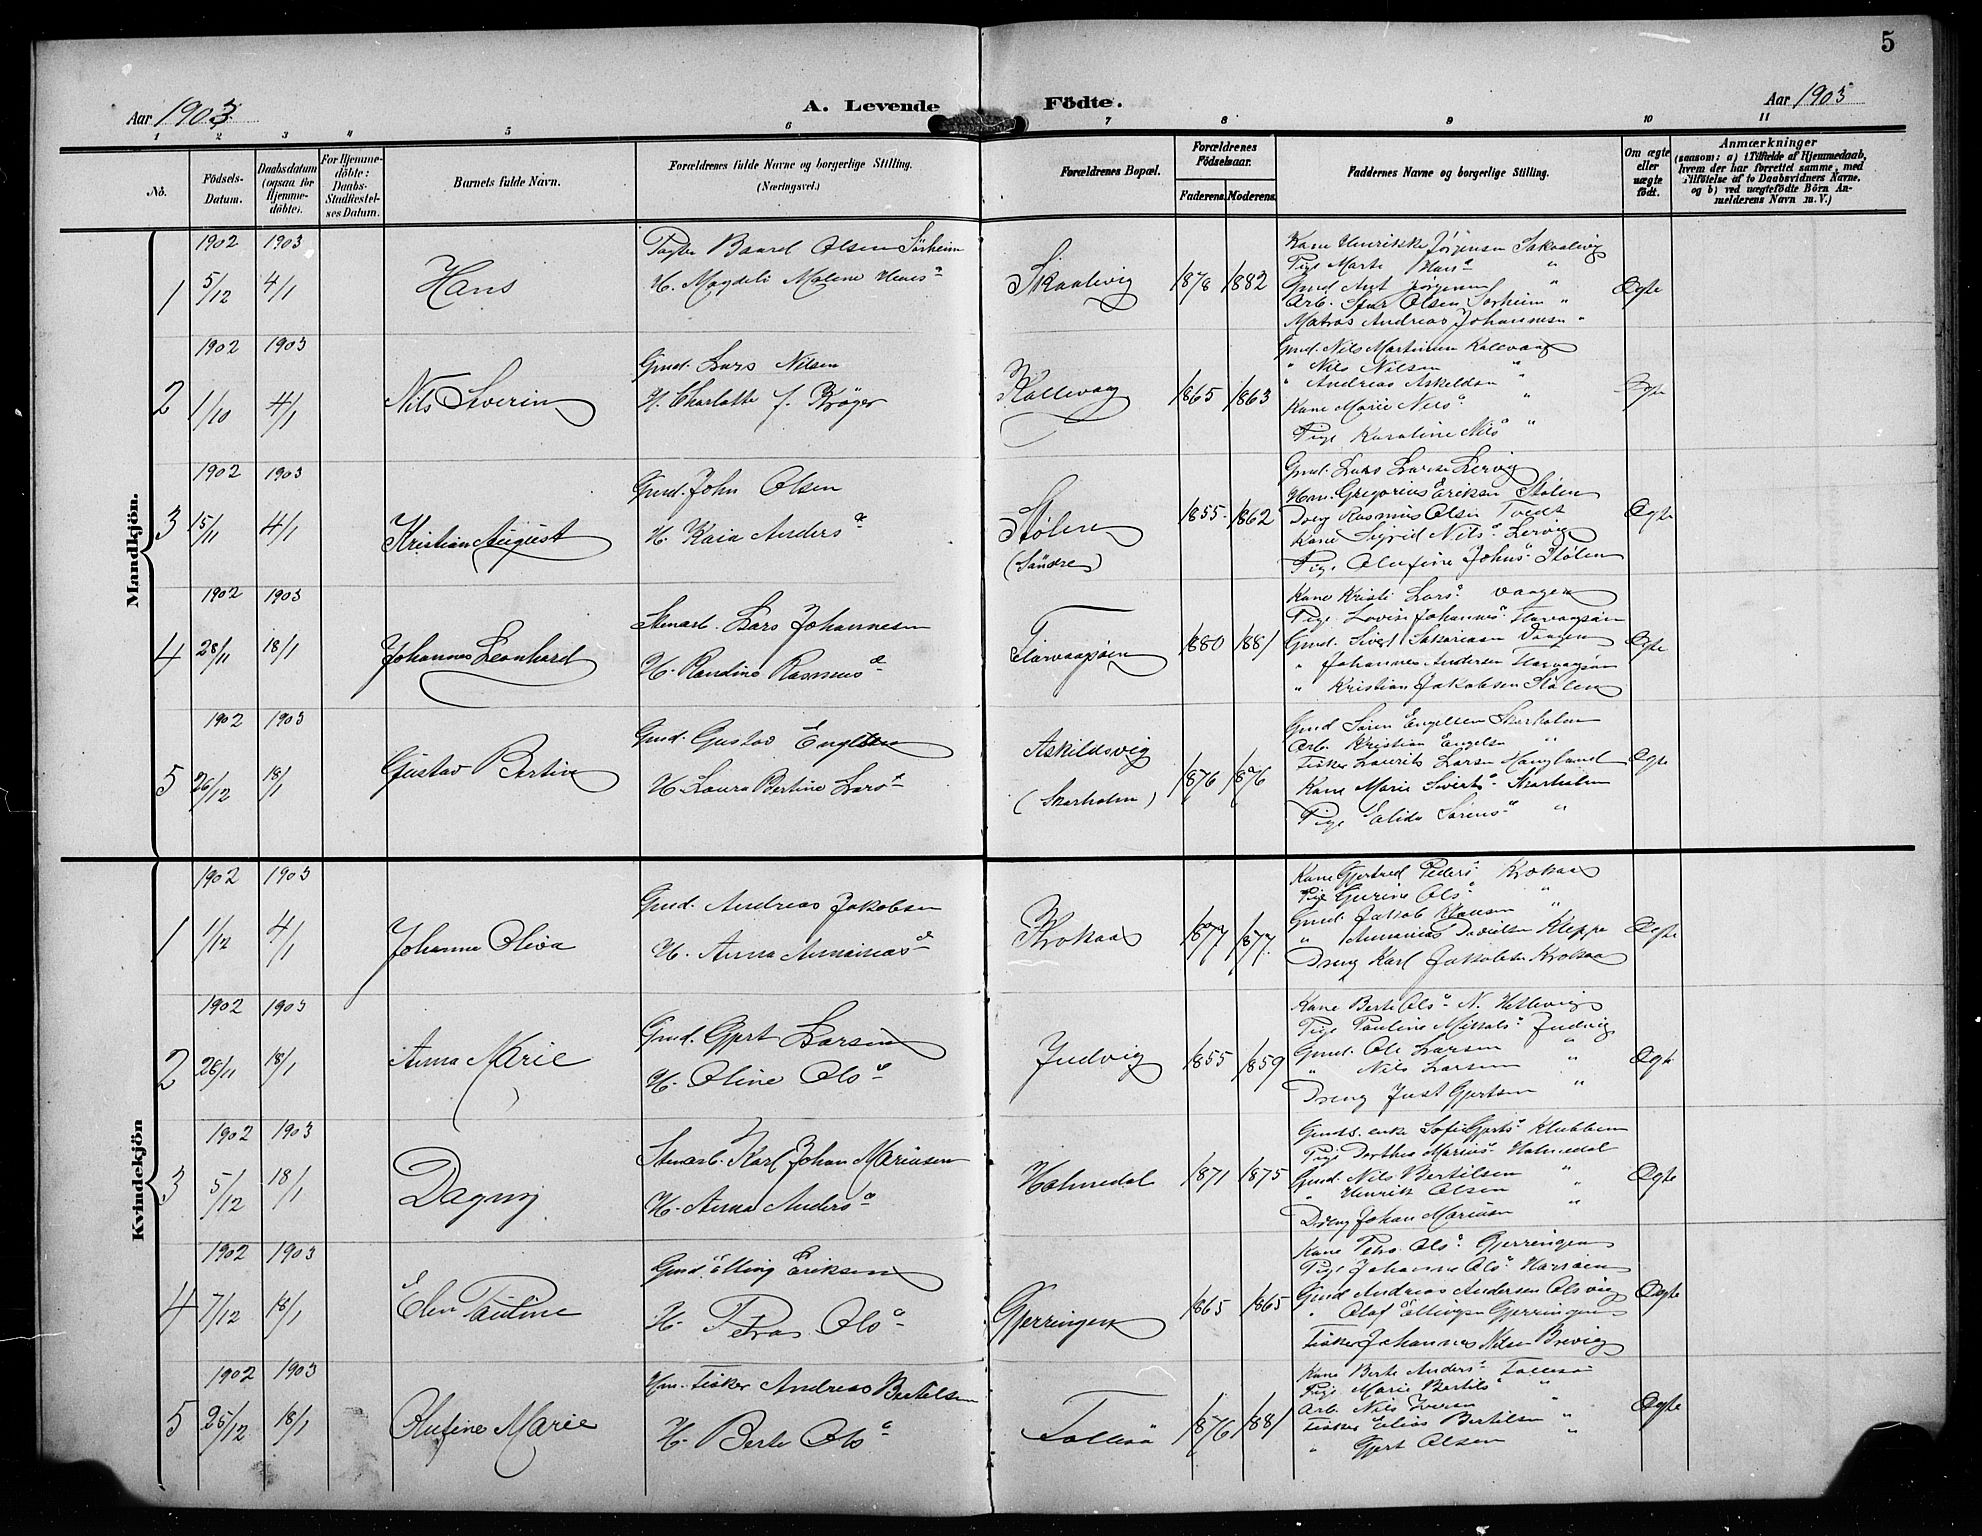 5
Aar 1903
A. Levende Födte.
Aar 1903
1 2 3 4 5 6 7 8 9 10 11
No.
Födsels-Datum.
Daabsdatum (ogsaa for Hjemmedöbte).
For Hjemmedöbte: Daabs-Stadfæstelses Datum.
Barnets fulde Navn.
Forældrenes fulde Navne og borgerlige Stilling. (Næringsvei.)
Forældrenes Bopæl.
Forældrenes Födselsaar.
Faderens. Moderens.
Faddernes Navne og borgerlige Stilling.
Om ægte eller uægte födt.
Anmærkninger
(saasom: a) i Tilfælde af Hjemmedaab, hvem der har forrettet samme, med Tilföielse af to Daabsvidners Navne, og b) ved uægtefödte Börn Anmelderens Navn m. V.)
Mandkjön.
1902 1903
1 5/12 4/1 Hans
Baard Olsen Sörheim
H. Magdeli Malene Hans d
Skaalevig 1878 1882 Ægte
Kone Henrikke Jörgensen Skaalevig
Pige Marte Hans d "
Gmd Ant Jörgensen "
Arb. Olsen Sörheim "
Matros Andreas Johannesen "
1902 1903
2 1/10 4/1 Nils Severin
Gmd. Lars Nilsen
H. Charlotte f. Kröger
Kallevaag 1865 1863 Ægte
Gmd. Nils Martinsen Kallevaag
" Nils Nilsen "
" Andreas Askeldsen "
Kone Marie Nils d "
Pige Karoline Nils d "
1902 1903
3 15/11 4/1 Kristian August
Gmd. John Olsen
H. Kaia Anders d
Stölen (Söndre) 1855 1862 Ægte
Gmd. Lars Larsen Lervig
Hm. Gregorius Eriksen Stölen
Dreng Rasmus Olsen Tvedt
Kone Sigrid Nils d Lervig
Pige Olufine Johns d Stölen
1902 1903
4 28/11 18/1 Johannes Leonhard
Stenarb. Lars Johannesen
H. Randine Rasmus d
1880 1881 Ægte
Kone Kristi Lars d Vaagen
Pige Lovise Johannes d
Gmd. Sivert Sakariasen Vaagen
" Johannes Andersen
" Kristian Jakobsen Stölen
1902 1903
5 26/12 18/1 Gustav Bertin
Gmd. Gustav Engelsen
H. Laura Bertine Lars d
Askildsvig (Skarholm) 1876 1876 Ægte
Gmd Sören Engelsen Skarholm
Arb. Kristian Engelsen "
Fisker Laurits Larsen Hanglund
Kone Marie Siverts d Skarholm
Pige Elida Sörens d "
Kvindekjön
1902 1903
1 1/12 4/1 Johanna Oliva
Gmd. Andreas Jakobsen
H. Anna Annanias d
Krokaas 1877 1877 Ægte
Kone Gjertrud Peders d Krokaas
Pige Gurine Ols d "
Gmd. Jakob Klausen "
" Annanias Davidsen Kleppe
Dreng Karl Jakobsen Krokaas
1902 1903
2 28/11 18/1 Anna Marie
Gmd. Gjert Larsen
H. Oline Ols d
Indvig 1855 1859 Ægte
Kone Berte Ols d N. Hellevig
Pige Pauline Mikals d Indvig
Gmd. Ole Larsen "
" Nils Larsen "
Dreng Just Gjertsen "
1902 1903
3 5/12 18/1 Dagny
Stenarb. Karl Johan Mariusen
H. Anna Anders d
Holmedal 1871 1875 Ægte
Gmds. enke Sofie Gjerts d Klubben
Pige Dorthea Marius d Holmedal
Gmd. Nils Bertilsen "
" Henrik Olsen "
Dreng Johan Mariusen "
1902 1903
4 7/12 18/1 Elen Pauline
Gmd. Elling Eriksen
H. Petra Ols d
Gjerringen 1865 1865 Ægte
Kone Petra Ols d Gjerringen
Pige Johanne Ols d
Gmd Andreas Andersen Olsvig
" Olaf Ellingsen Gjerringen
Fisker Johannes Nilsen Brevig
1902 1903
5 25/12 18/1 Olufine Marie
Hm. Fisker Andreas Bertelsen
H. Berte Ols d
Tollesö 1876 1881 Ægte
Kone Berte Anders d Tollesö
Pige Marie Bertils d "
Arb. Nils Iversen
Fisker Elias Bertilsen "
" Gjert Olsen "